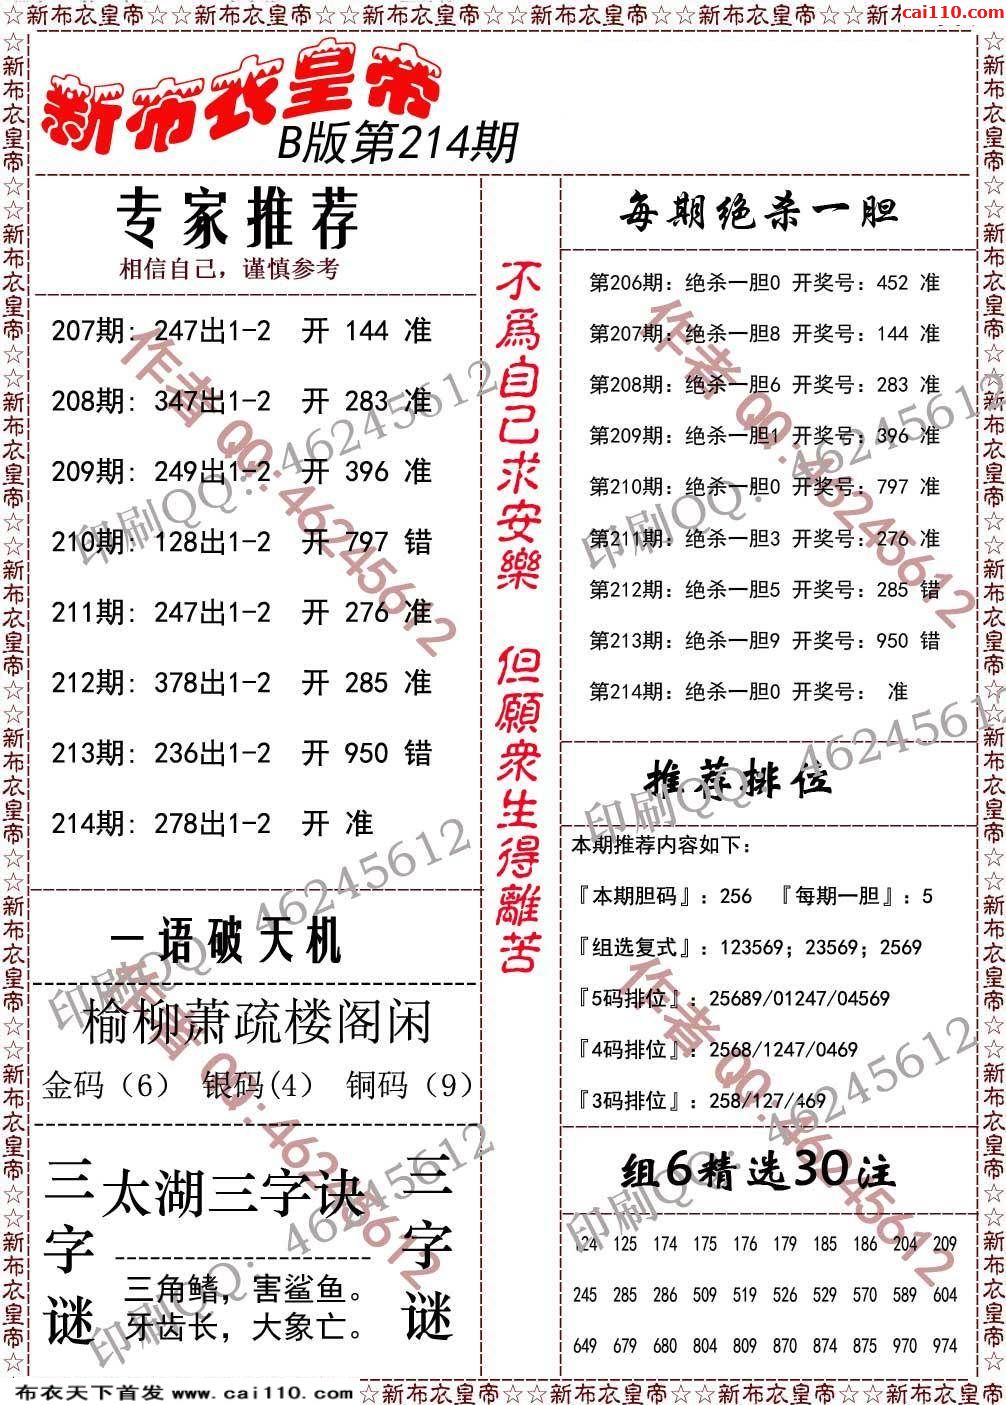 ☆新布衣皇帝☆☆新布衣皇帝☆☆新布衣皇帝☆☆新布衣皇帝☆☆新布衣皇帝☆☆新布
cai110.com
新布衣皇帝
B版第214期
专家推荐
相信自己，谨慎参考
207期: 247出1-2 开 144 准
208期: 347出1-2 开 283 准
209期: 249出1-2 开 396 准
210期: 128出1-2 开 797 错
211期: 247出1-2 开 276 准
212期: 378出1-2 开 285 准
213期: 236出1-2 开 950 错
214期: 278出1-2 开 准
一语破天机
榆柳萧疏楼阁闲
金码（6） 银码(4） 铜码（9）
三字谜
太湖三字诀
三角鳍，害鲨鱼。
牙齿长，大象亡。
三字谜
不爲自己求安樂 但願衆生得離苦
每期绝杀一胆
第206期: 绝杀一胆0 开奖号: 452 准
第207期: 绝杀一胆8 开奖号: 144 准
第208期: 绝杀一胆6 开奖号: 283 准
第209期: 绝杀一胆1 开奖号: 396 准
第210期: 绝杀一胆0 开奖号: 797 准
第211期: 绝杀一胆3 开奖号: 276 准
第212期: 绝杀一胆5 开奖号: 285 错
第213期: 绝杀一胆9 开奖号: 950 错
第214期: 绝杀一胆0 开奖号: 准
推荐排位
本期推荐内容如下:
『本期胆码』: 256 『每期一胆』: 5
『组选复式』: 123569; 23569; 2569
『5码排位』: 25689/01247/04569
『4码排位』: 2568/1247/0469
『3码排位』: 258/127/469
组6精选30注
124 125 174 175 176 179 185 186 204 209
245 285 286 509 519 526 529 570 589 604
649 679 680 804 809 870 874 875 970 974
作者 QQ:46245612
印刷QQ: 46245612
作者 QQ:46245612
印刷QQ: 46245612
印刷QQ: 46245612
印刷QQ: 46245612
作者 QQ:46245612
作者 QQ:46245612
印刷QQ: 46245612
印刷QQ: 46245612
布衣天下首发 www.cai110.com
☆新布衣皇帝☆☆新布衣皇帝☆☆新布衣皇帝☆☆新布衣皇帝☆